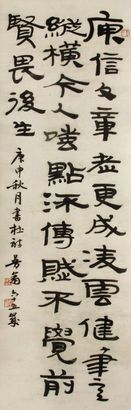 庾信文章老更成凌雲健筆意
縱橫今人嗤點流傳賦不覺前
賢畏後生
庚申秋月書杜詩